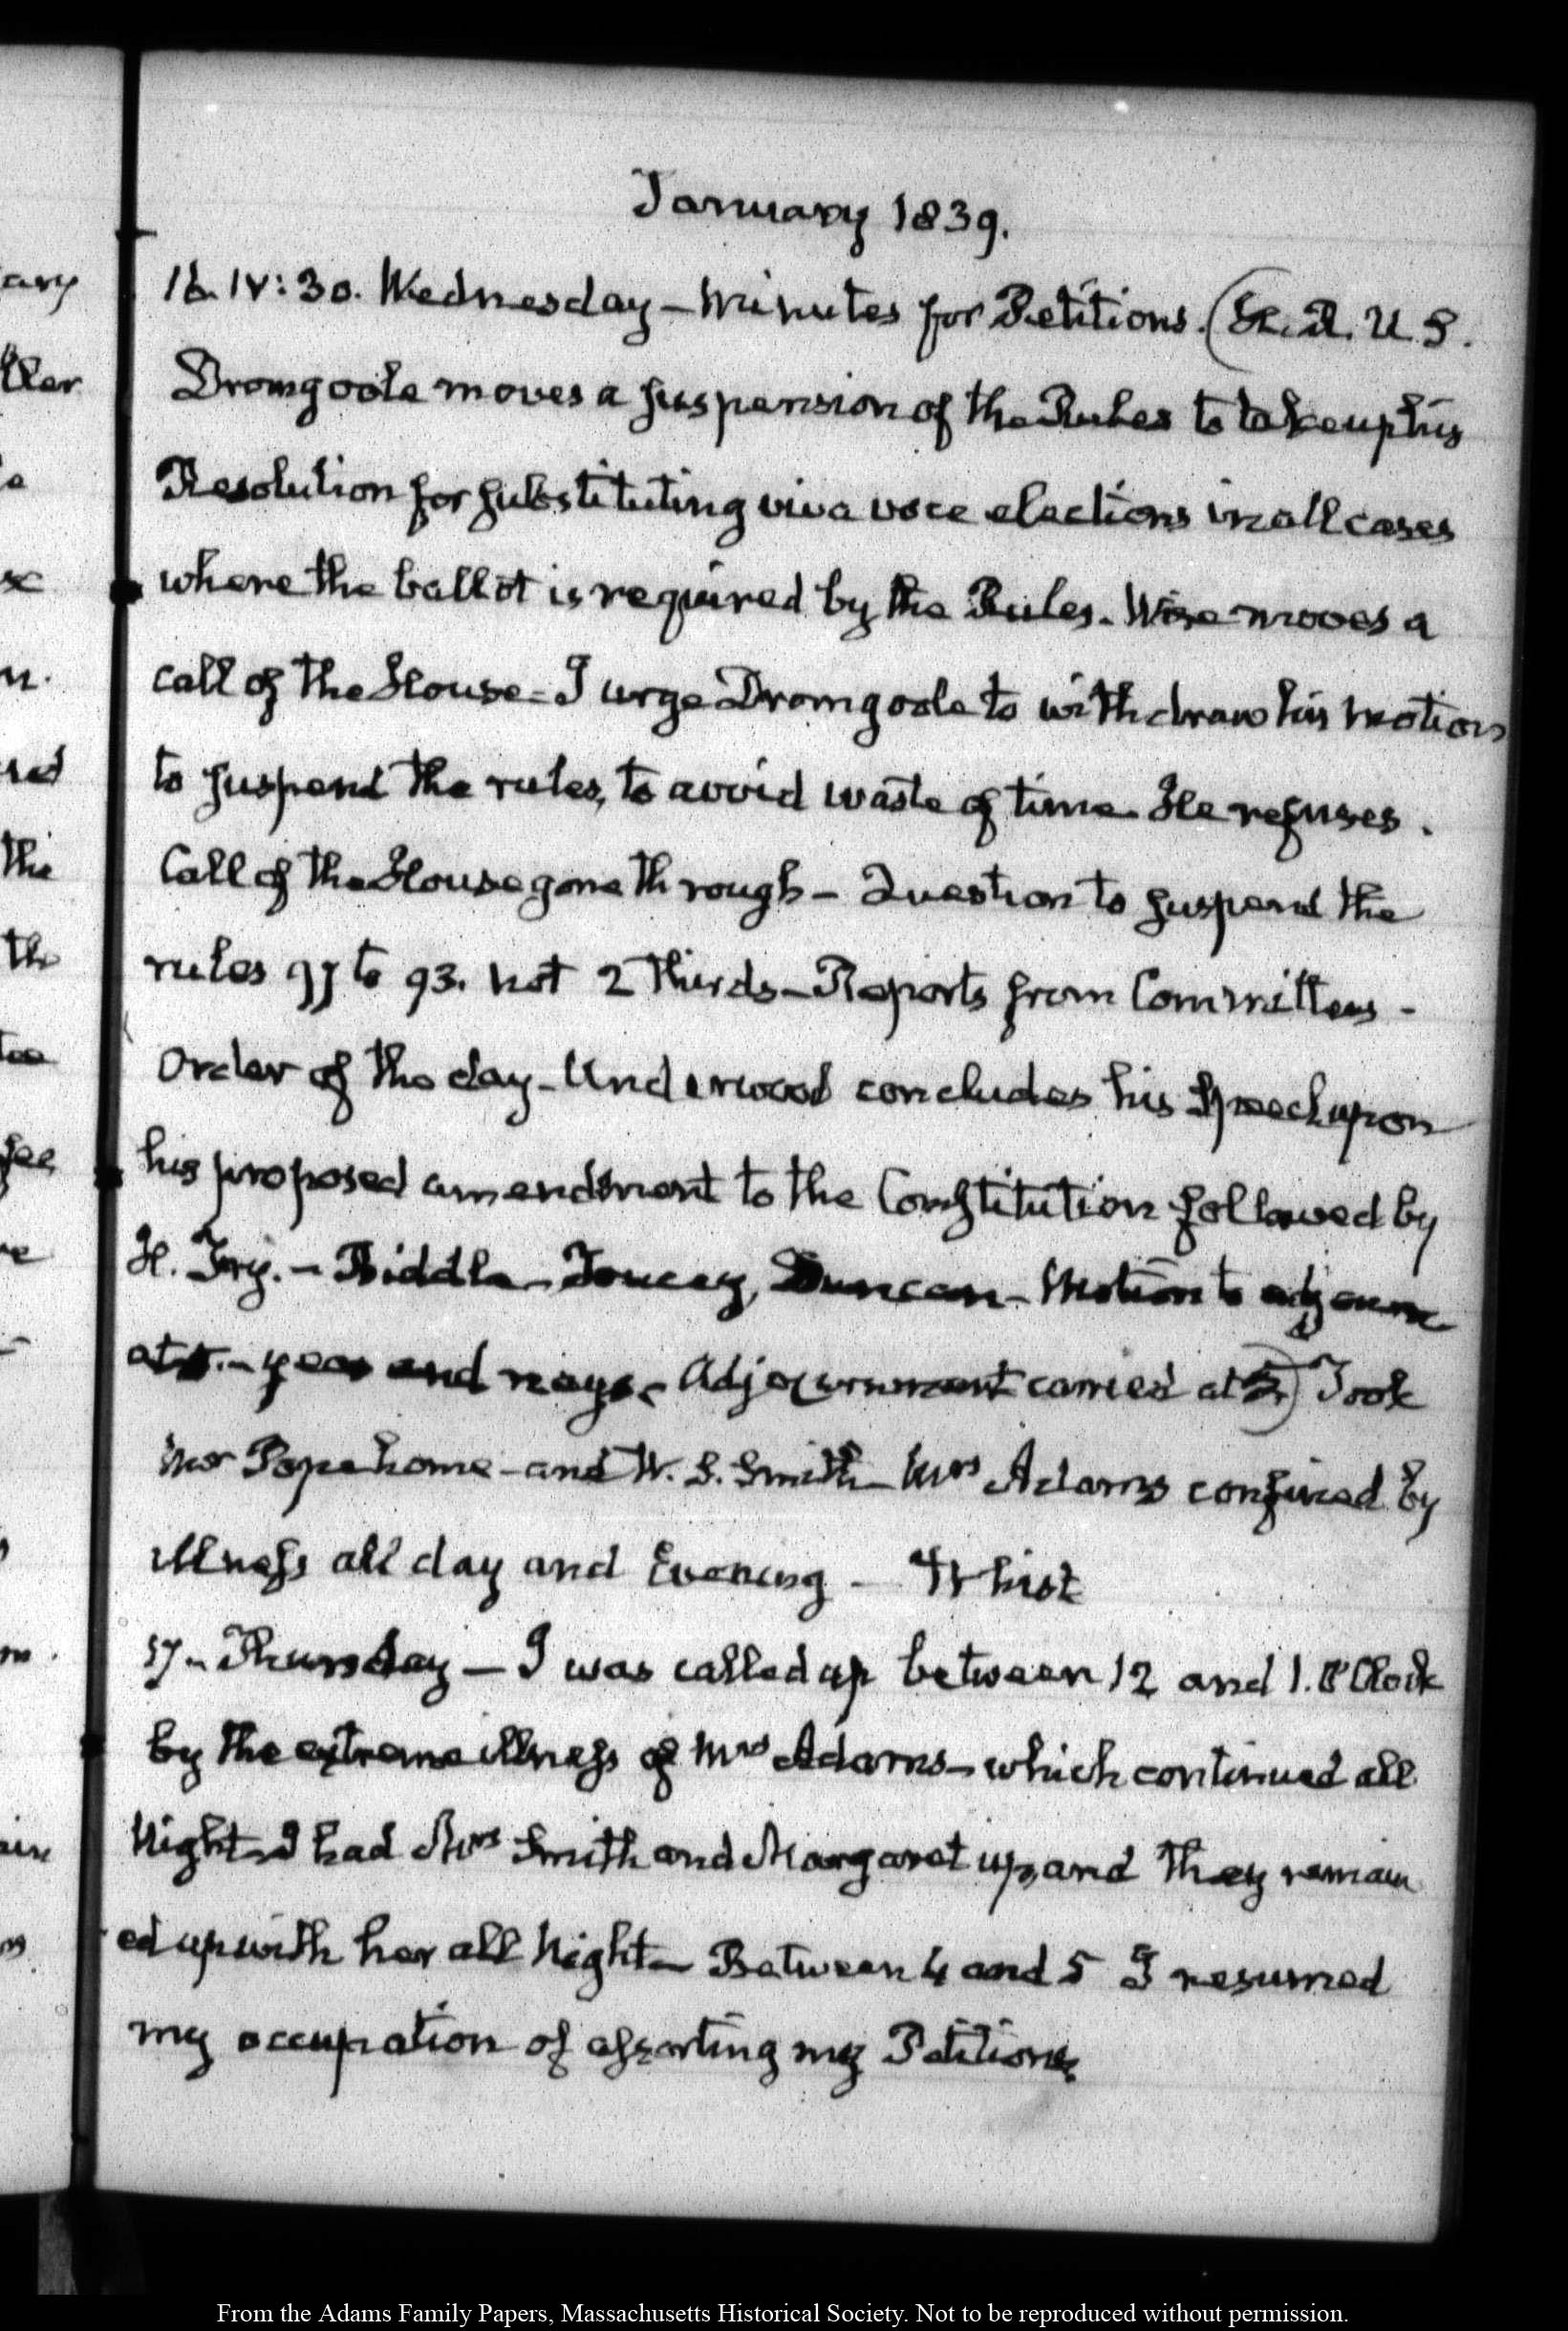 January 1839.
16. IV:30. Wednesday – Minutes for Petitions. (H. R. U. S.
Dromgoole moves a suspension of the Rules to take up his
Resolution for substituting viva voce elections in all cases
where the ballot is required by the Rules. Wise moves a
call of the House – I urge Dromgoole to withdraw his motion
to suspend the rules, to avoid waste of time. He refuses.
Call of the House gone through – Question to suspend the
rules 97 to 93. not 2 thirds – Reports from Committees –
Order of the day – Underwood concludes his Speech upon
his proposed amendment to the Constitution followed by
– Biddle – Toucey, Duncan – Motion to adjourn
at – yeas and nays. Adjournment carried at 5.) Took
Mr Pope home – and W. S. Smith – Mrs Adams confined by
illness all day and Evening – Whist
17 – Thursday – I was called up between 12 and 1. O'Clock
by the extreme illness of Mrs Adams – which continued all
Night – I had Mrs Smith and Margaret up, and they remain
ed up with her all Night – Between 4 and 5 I resumed
my occupation of assorting my Petitions.
ary
ller
e
se
n.
red
the
the
tee
see
re
m.
ain
From the Adams Family Papers, Massachusetts Historical Society. Not to be reproduced without permission.